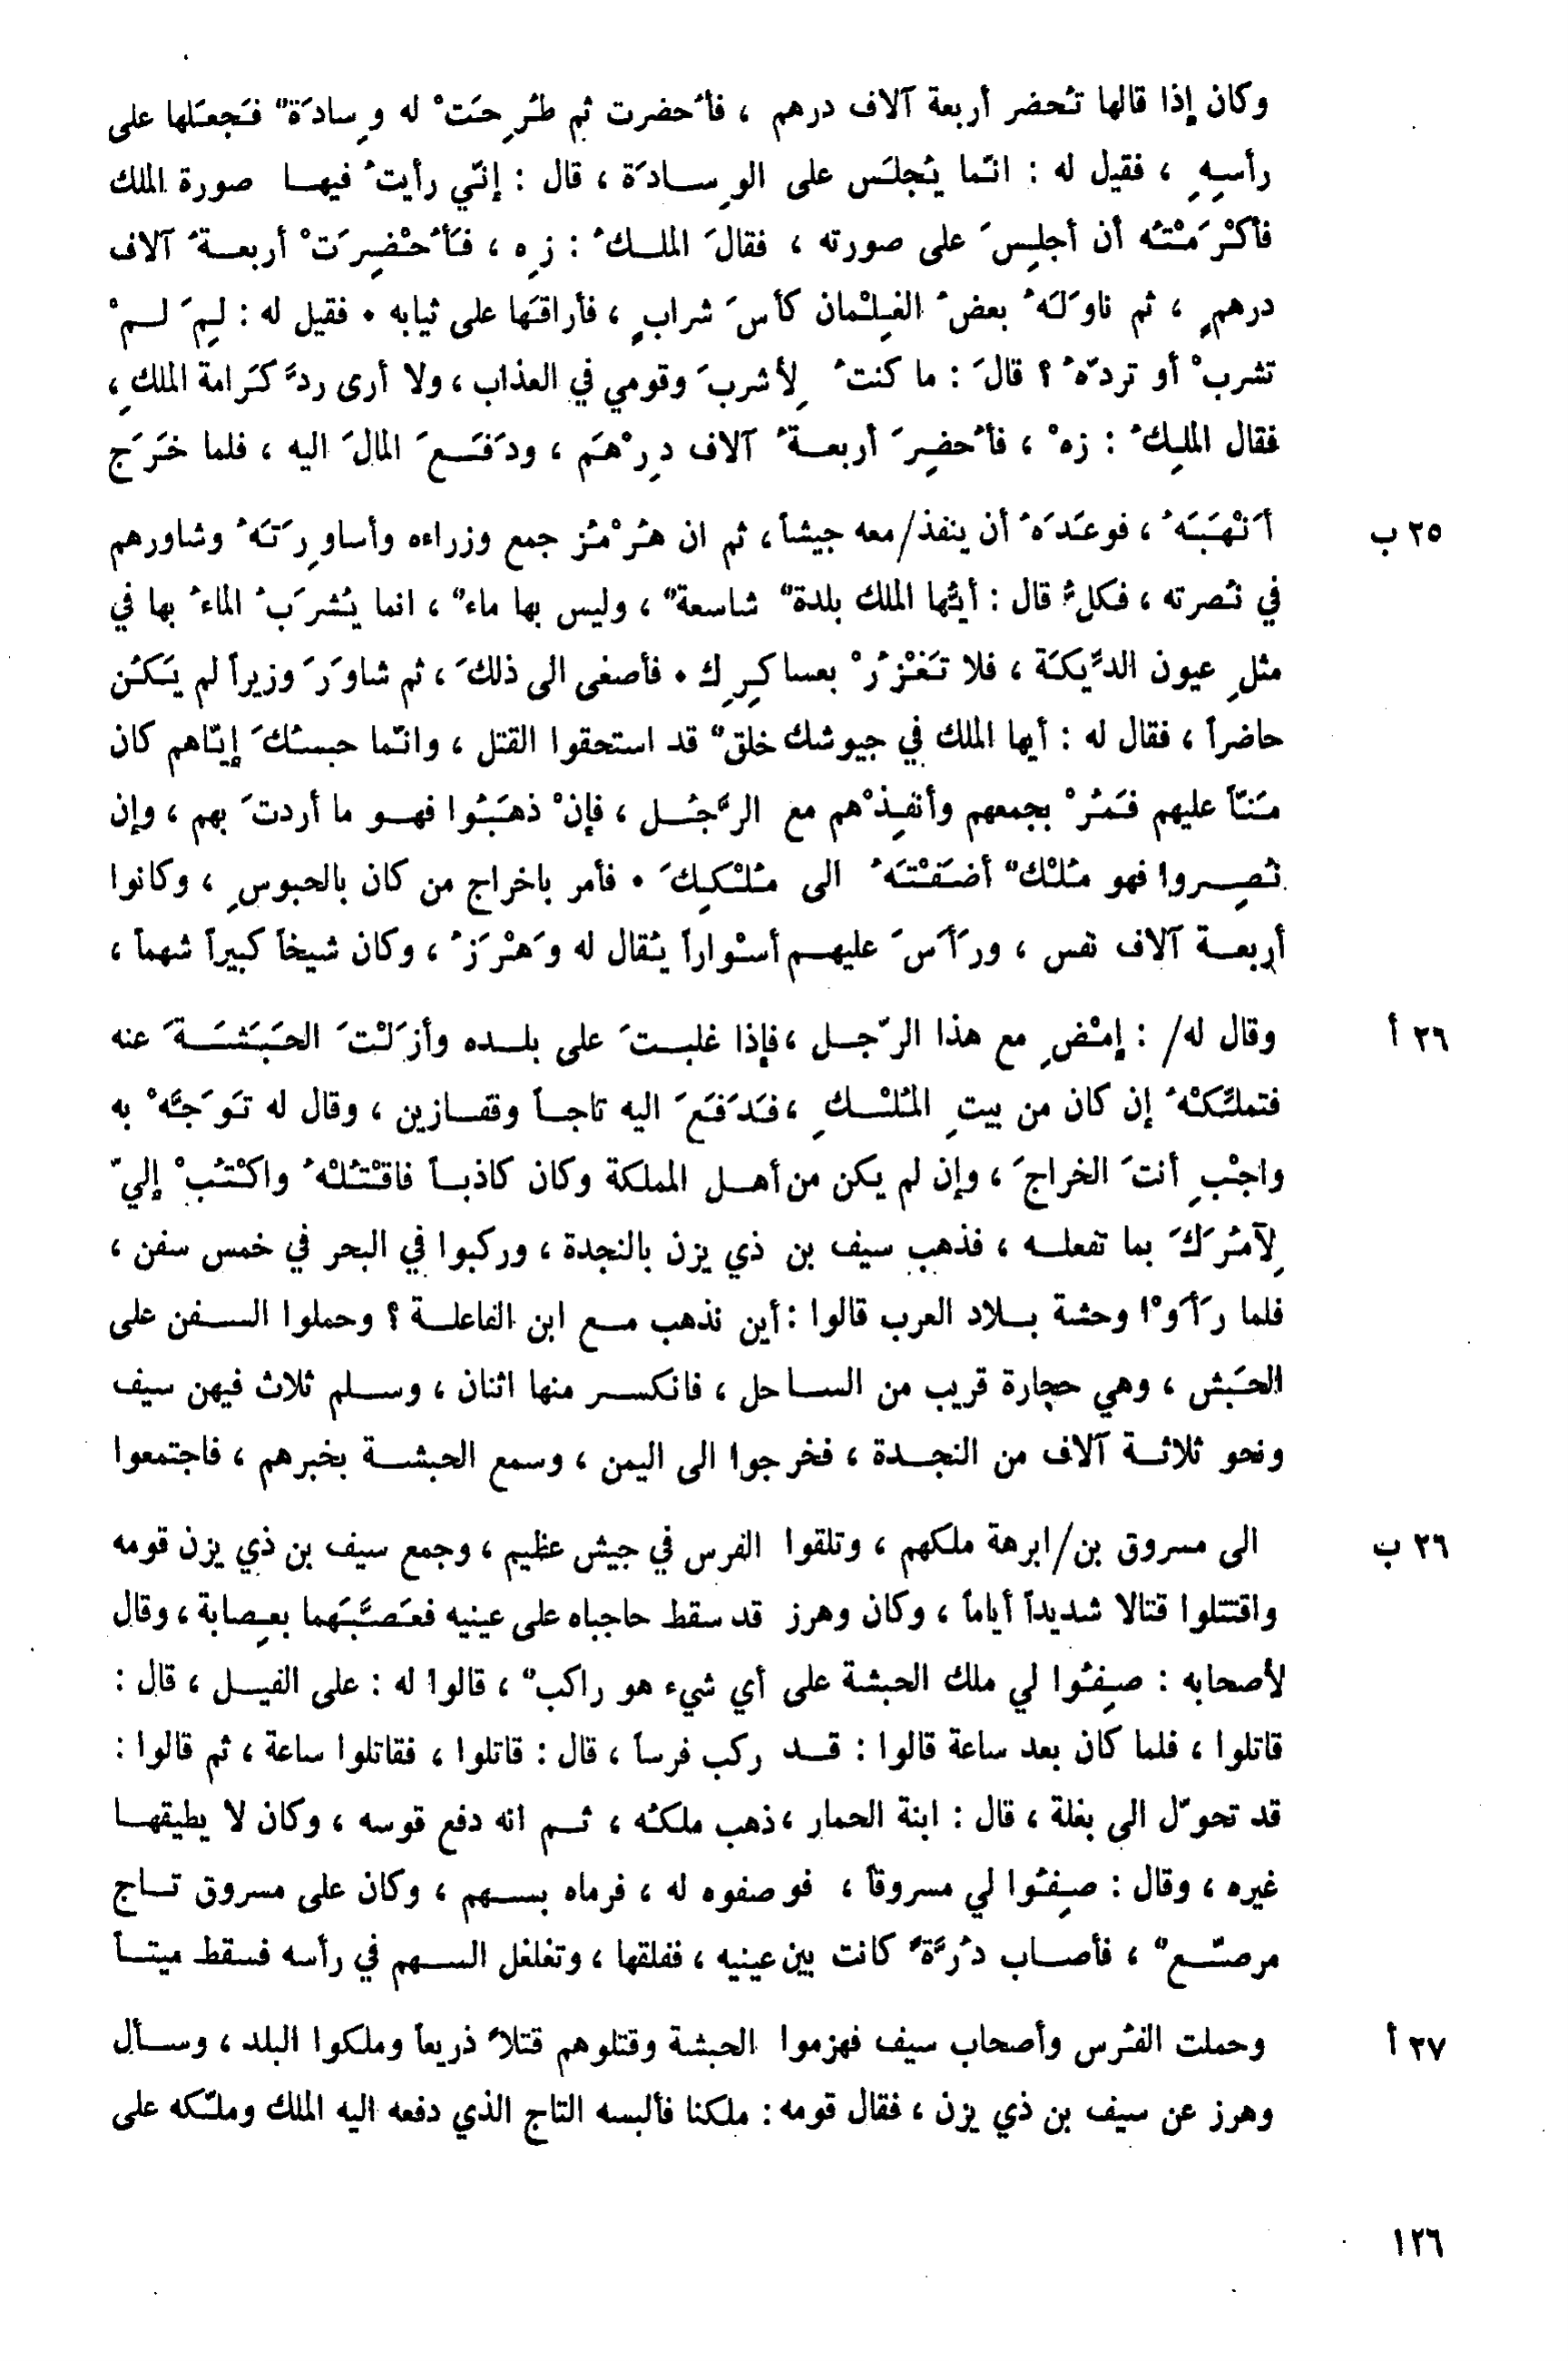 وكان إذا قالها تُحضر أربعة آلاف درهم ، فأُحضرت ثم طُرِحَتْ له وِسادَةٌ فَجعَلها على
رأسِهِ ، فقيل له : انّما يُجلَس على الوِسادَة ، قال : إنّي رأيتُ فيها صورة الملك
فأكْرَمْتُه أن أجلِسَ على صورته ، فقالَ الملكُ : زِه ، فَأُحْضِرَتْ أربعةُ آلاف
درهمٍ ، ثم ناوَلَهُ بعضُ الغِلْمان كأسَ شرابٍ ، فأراقَها على ثيابه . فقيل له : لِمَ لمْ
تشربْ أو تردّهُ ؟ قالَ : ما كنتُ لِأشربَ وقومي في العذاب ، ولا أرى ردَّ كَرامة الملكِ ،
فقال الملِكُ : زهْ ، فأُحضِرَ أربعةُ آلاف دِرْهَم ، ودَفَعَ المالَ اليه ، فلما خَرَج
٢٥ ب أَنْهَبَهُ ، فوعَدَهُ أن ينفذ/معه جيشاً ، ثم ان هُرْمُز جمع وزراءه وأساوِرَتَهُ وشاورهم
في نُصرته ، فكلٌ قال : أيُّها الملك بلدةٌ شاسعةٌ ، وليس بها ماءٌ ، انما يُشرَبُ الماءُ بها في
مثلِ عيون الدِّيكَة ، فلا تَغْزُرْ بعساكِرِك . فأصغى الى ذلكَ ، ثم شاوَرَ وزيراً لم يَكُن
حاضراً ، فقال له : أيها الملك في جيوشك خلقٌ قد استحقوا القتل ، وانّما حبسُكَ إيّاهم كان
مَنّاً عليهم فَمُرْ بجمعهم وأنفِذْهم مع الرَّجُل ، فإنْ ذهَبُوا فهو ما أردتَ بهم ، وإن
نُصِروا فهو مُلْكٌ أضَفْتَهُ الى مُلْكِكَ . فأمر باخراج من كان بالحبوسِ ، وكانوا
أربعة آلاف نفس ، ورَأَسَ عليهم أسْواراً يُقال له وَهْرَزُ ، وكان شيخاً كبيراً شهماً ،
٢٦ أ وقال له/ : إمْضِ مع هذا الرّجل ، فإذا غلبتَ على بلده وأزَلْتَ الحَبَشَةَ عنه
فتملّكْهُ إن كان من بيتِ المُلْكِ ، فَدَفَعَ اليه تاجاً وقفازين ، وقال له تَوَجَّهْ به
واجْبِ أنتَ الخراجَ ، وإن لم يكن من أهل المملكة وكان كاذباً فاقْتُلْهُ واكْتُبْ إليّ
لِآمُرَكَ بما تفعله ، فذهب سيف بن ذي يزن بالنجدة ، وركبوا في البحر في خمس سفن ،
فلما رَأَوْا وحشة بلاد العرب قالوا : أين نذهب مع ابن الفاعلة ؟ وحملوا السفن على
الحَبش ، وهي حجارة قريب من الساحل ، فانكسر منها اثنان ، وسلم ثلاث فيهن سيف
ونحو ثلاثة آلاف من النجدة ، فخرجوا الى اليمن ، وسمع الحبشة بخبرهم ، فاجتمعوا
٢٦ ب الى مسروق بن/ابرهة ملكهم ، وتلقوا الفرس في جيش عظيم ، وجمع سيف بن ذي يزن قومه
واقتتلوا قتالا شديداً أياماً ، وكان وهرز قد سقط حاجباه على عينيه فعَصَّبَهما بعِصابة ، وقال
لأصحابه : صِفُوا لي ملك الحبشة على أي شيء هو راكبٌ ، قالوا له : على الفيل ، قال :
قاتلوا ، فلما كان بعد ساعة قالوا : قد ركب فرساً ، قال : قاتلوا ، فقاتلوا ساعة ، ثم قالوا :
قد تحوّل الى بغلة ، قال : ابنة الحمار ، ذهب ملكُه ، ثم انه دفع قوسه ، وكان لا يطيقها
غيره ، وقال : صِفُوا لي مسروقاً ، فوصفوه له ، فرماه بسهم ، وكان على مسروق تاج
مرصّعٌ ، فأصاب دُرَّةً كانت بين عينيه ، ففلقها ، وتغلغل السهم في رأسه فسقط ميتاً
٢٧ أ وحملت الفُرس وأصحاب سيف فهزموا الحبشة وقتلوهم قتلاً ذريعاً وملكوا البلد ، وسأل
وهرز عن سيف بن ذي يزن ، فقال قومه : ملكنا فألبسه التاج الذي دفعه اليه الملك وملّكه على
١٢٦